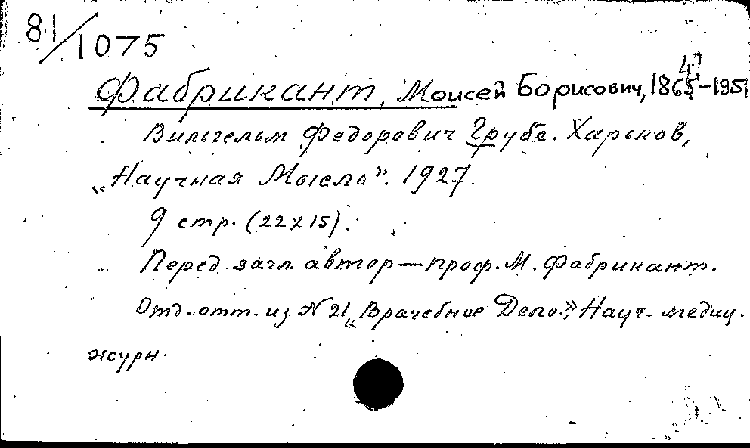 81/1075
Фабрикант, Моисей Борисович, 1864-1951
Вильгельм Федорович Грубе. Харьков,
„Научная Мысль". 1927.
9 стр. (22x15).
Перед загл. автор — проф. М. Фабрикант.
Отд. отт. из N 21 „Врачебное Дело", Науч. медиц.
журн.